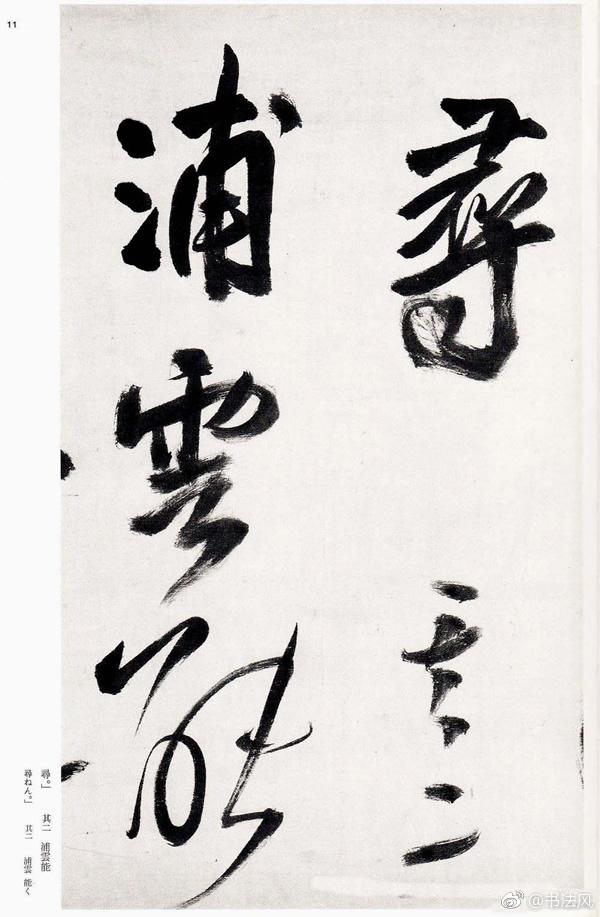 11
尋
其二
浦雲能
尋。」 其二 浦雲能
尋ねん。」 其二 浦雲 能く
@书法风